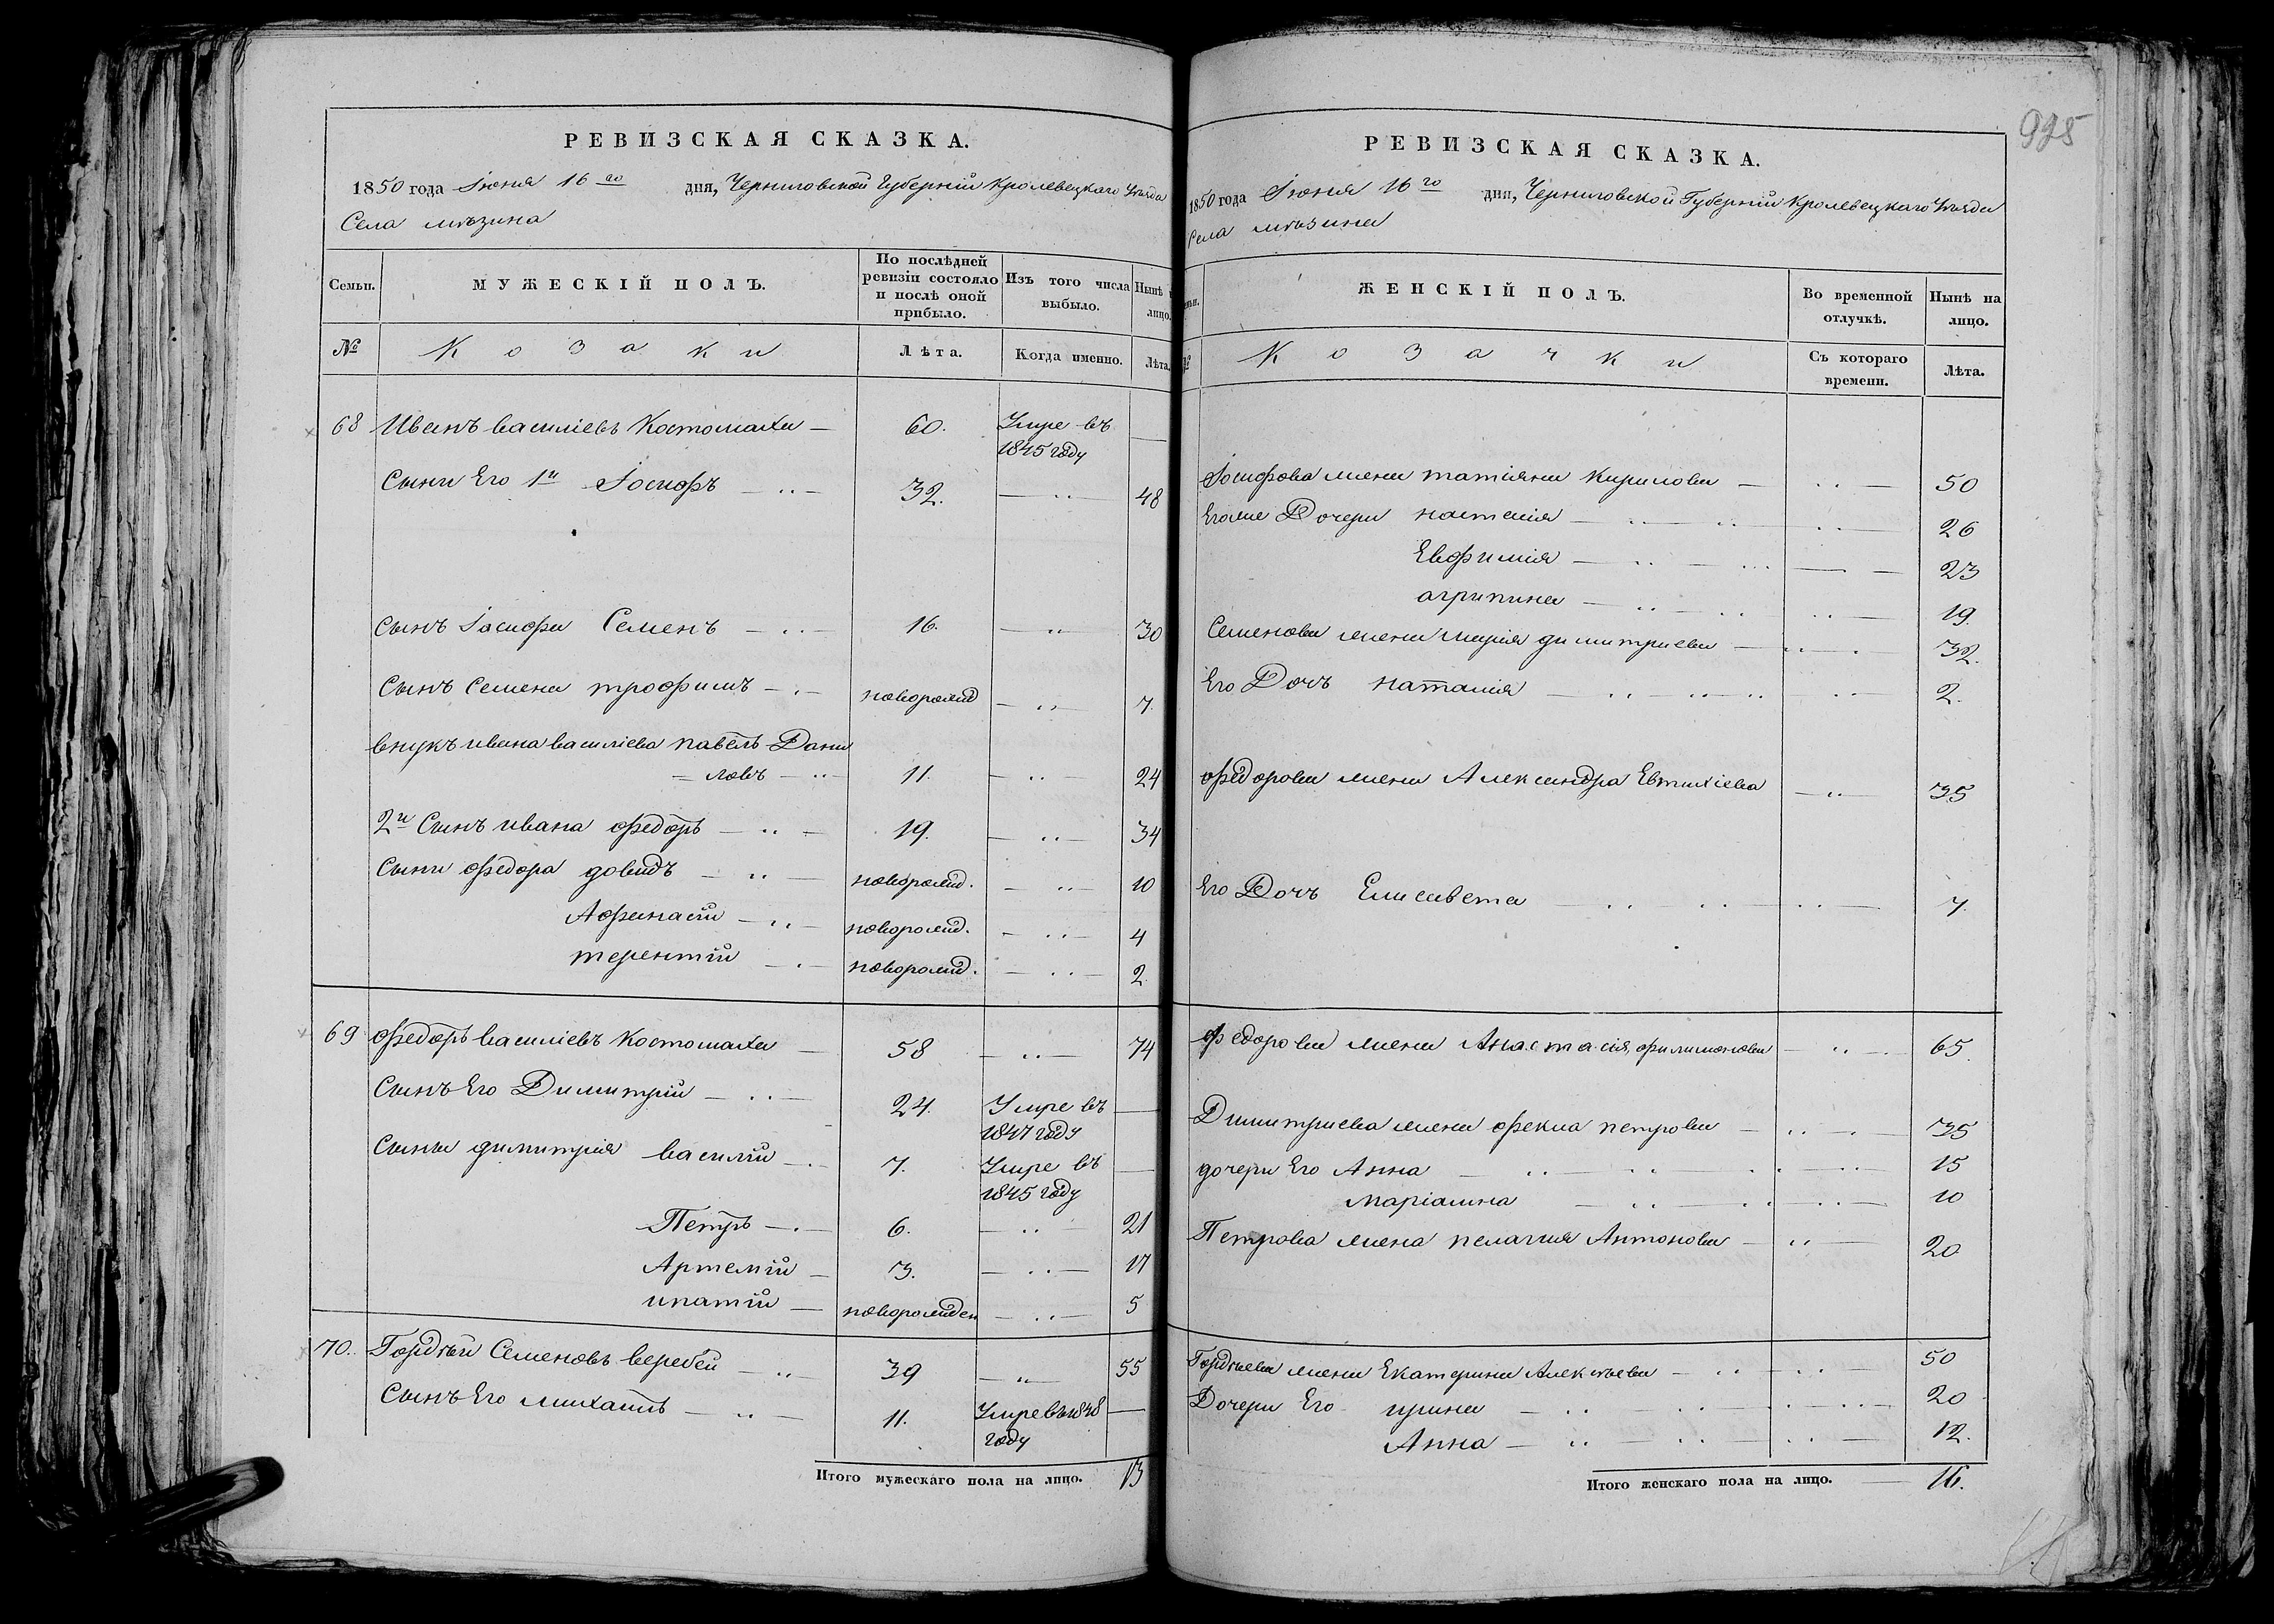 РЕВИЗСКАЯ СКАЗКА.
1850 года Іюня 16го дня, Черниговской Губерніи Кролевецкаго Уѣзда
Села мѣзина
Семьи.
МУЖЕСКІЙ ПОЛЪ.
По послѣдней ревизіи состояло и послѣ оной прибыло.
Изъ того числа выбыло.
Нынѣ на лицо.
№
Козаки
Лѣта.
Когда именно.
Лѣта.
68 Иванъ василіевъ Костомаха — 60. Умре въ 1845 году —
Сыни Его 1й Іосифъ — 32. — 48
Сынъ Іосифа Семенъ — 16. — 30
Сынъ Семена трофимъ — новорожд — 7.
внукъ ивана василіева павелъ Дани
= ловъ — 11. — 24
2й Сынъ ивана федоръ — 19. — 34
Сыни федора довидъ — новорожд. — 10
Афанасій — новорожд. — 4
терентій — новорожд. — 2
69 федоръ василіевъ Костомаха — 58 — 74
Сынъ Его Димитрій — 24. Умре въ 1847 году —
Сыны димитрія василій — 7. Умре въ 1845 году —
Петръ — 6. — 21
Артемій — 3. — 17
ипатій — новорожден — 5
70. Гордѣй Семеновъ веребей — 39 — 55
Сынъ Его михаилъ — 11. Умре въ 1848 году —
Итого мужескаго пола на лицо. 13
925
РЕВИЗСКАЯ СКАЗКА.
1850 года Іюня 16го дня, Черниговской Губерніи Кролевецкаго Уѣзда
Села мѣзина
ЖЕНСКІЙ ПОЛЪ.
Во временной отлучкѣ.
Нынѣ на лицо.
№
Козачки
Съ котораго времени.
Лѣта.
Іосифова жена татіяна Кирилова — 50
Егоже Дочери настасія — 26
Евфимія — 23
агрипина — 19.
Семенова жена марія димитриева — 32.
Его Дочъ наталія — 2.
федорова жена Александра Евтихіева — 35
Его Дочъ Елисавета — 7.
федорова жена Анастасія филимонова — 65.
Димитриева жена фекла петрова — 35
дочери Его Анна — 15
маріамна — 10
Петрова жена пелагия Антонова — 20
Гордѣева жена Екатерина Алексѣева — 50
Дочери Его ирина — 20
Анна — 12.
Итого женскаго пола на лицо. — 16.